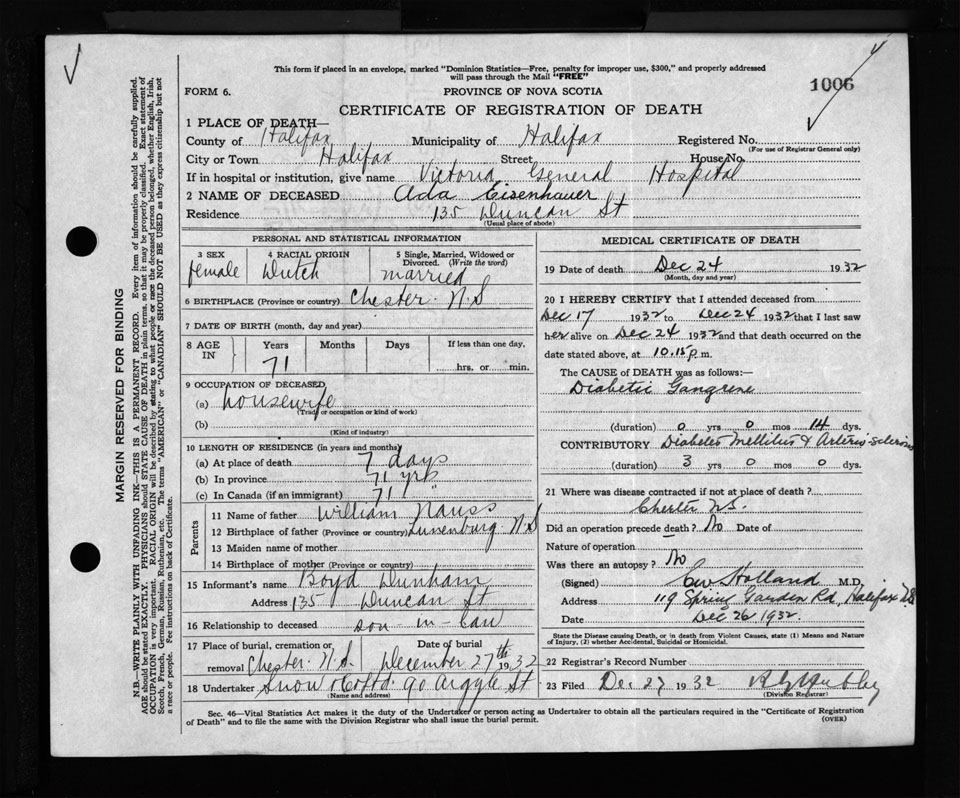 This form if placed in an envelope, marked "Dominion Statistics—Free, penalty for improper use, $300," and properly addressed
will pass through the Mail "FREE"
1006
FORM 6.
PROVINCE OF NOVA SCOTIA
CERTIFICATE OF REGISTRATION OF DEATH
1 PLACE OF DEATH—
County of Halifax Municipality of Halifax Registered No.
(For use of Registrar General only)
City or Town Halifax Street House No.
If in hospital or institution, give name Victoria General Hospital
2 NAME OF DECEASED Ada Eisenhauer
Residence 135 Duncan St
(Usual place of abode)
PERSONAL AND STATISTICAL INFORMATION
3 SEX 4 RACIAL ORIGIN 5 Single, Married, Widowed or
Divorced. (Write the word)
female Dutch married
6 BIRTHPLACE (Province or country) Chester N.S
7 DATE OF BIRTH (month, day and year)
8 AGE IN Years Months Days If less than one day,
71 hrs. or min.
9 OCCUPATION OF DECEASED
(a) housewife
(Trade or occupation or kind of work)
(b)
(Kind of industry)
10 LENGTH OF RESIDENCE (in years and months)
(a) At place of death 7 days
(b) In province 71 yrs
(c) In Canada (if an immigrant) 71 "
Parents
11 Name of father William Nauss
12 Birthplace of father (Province or country) Lunenburg N.S
13 Maiden name of mother
14 Birthplace of mother (Province or country)
15 Informant's name Boyd Dunham
Address 135 Duncan St
16 Relationship to deceased son-in-law
17 Place of burial, cremation or Date of burial
removal Chester N.S. December 27th 1932
18 Undertaker Snow & Co Ltd 90 Argyle St
(Name and address)
MEDICAL CERTIFICATE OF DEATH
19 Date of death Dec 24 1932
(Month, day and year)
20 I HEREBY CERTIFY that I attended deceased from
Dec 17 1932 to Dec 24 1932 that I last saw
her alive on Dec 24 1932 and that death occurred on the
date stated above, at 10.15 p.m.
The CAUSE of DEATH was as follows:—
Diabetic Gangrene
(duration) 0 yrs 0 mos 14 dys.
CONTRIBUTORY Diabetes Mellitus & Arterio-sclerosis
(duration) 3 yrs 0 mos 0 dys.
21 Where was disease contracted if not at place of death?
Chester N.S.
Did an operation precede death? No Date of
Nature of operation
Was there an autopsy? No
(Signed) C W Holland M.D.
Address 119 Spring Garden Rd, Halifax N.S
Date Dec 26 1932.
State the Disease causing Death, or in death from Violent Causes, state (1) Means and Nature
of Injury, (2) whether Accidental, Suicidal or Homicidal.
22 Registrar's Record Number
23 Filed Dec 27 1932
(Division Registrar)
Sec. 46—Vital Statistics Act makes it the duty of the Undertaker or person acting as Undertaker to obtain all the particulars required in the "Certificate of Registration
of Death" and to file the same with the Division Registrar who shall issue the burial permit.
(OVER)
MARGIN RESERVED FOR BINDING
N.B.—WRITE PLAINLY WITH UNFADING INK—THIS IS A PERMANENT RECORD. Every item of information should be carefully supplied.
AGE should be stated EXACTLY. PHYSICIANS should STATE CAUSE OF DEATH in plain terms, so that it may be properly classified. Exact statement of
OCCUPATION is very important. RACIAL ORIGIN will be described by stating to what people or race the deceased person belonged, whether English, Irish,
Scotch, French, German, Russian, Ruthenian, etc. The terms "AMERICAN" or "CANADIAN" SHOULD NOT BE USED as they express citizenship but not
a race or people. See instructions on back of Certificate.